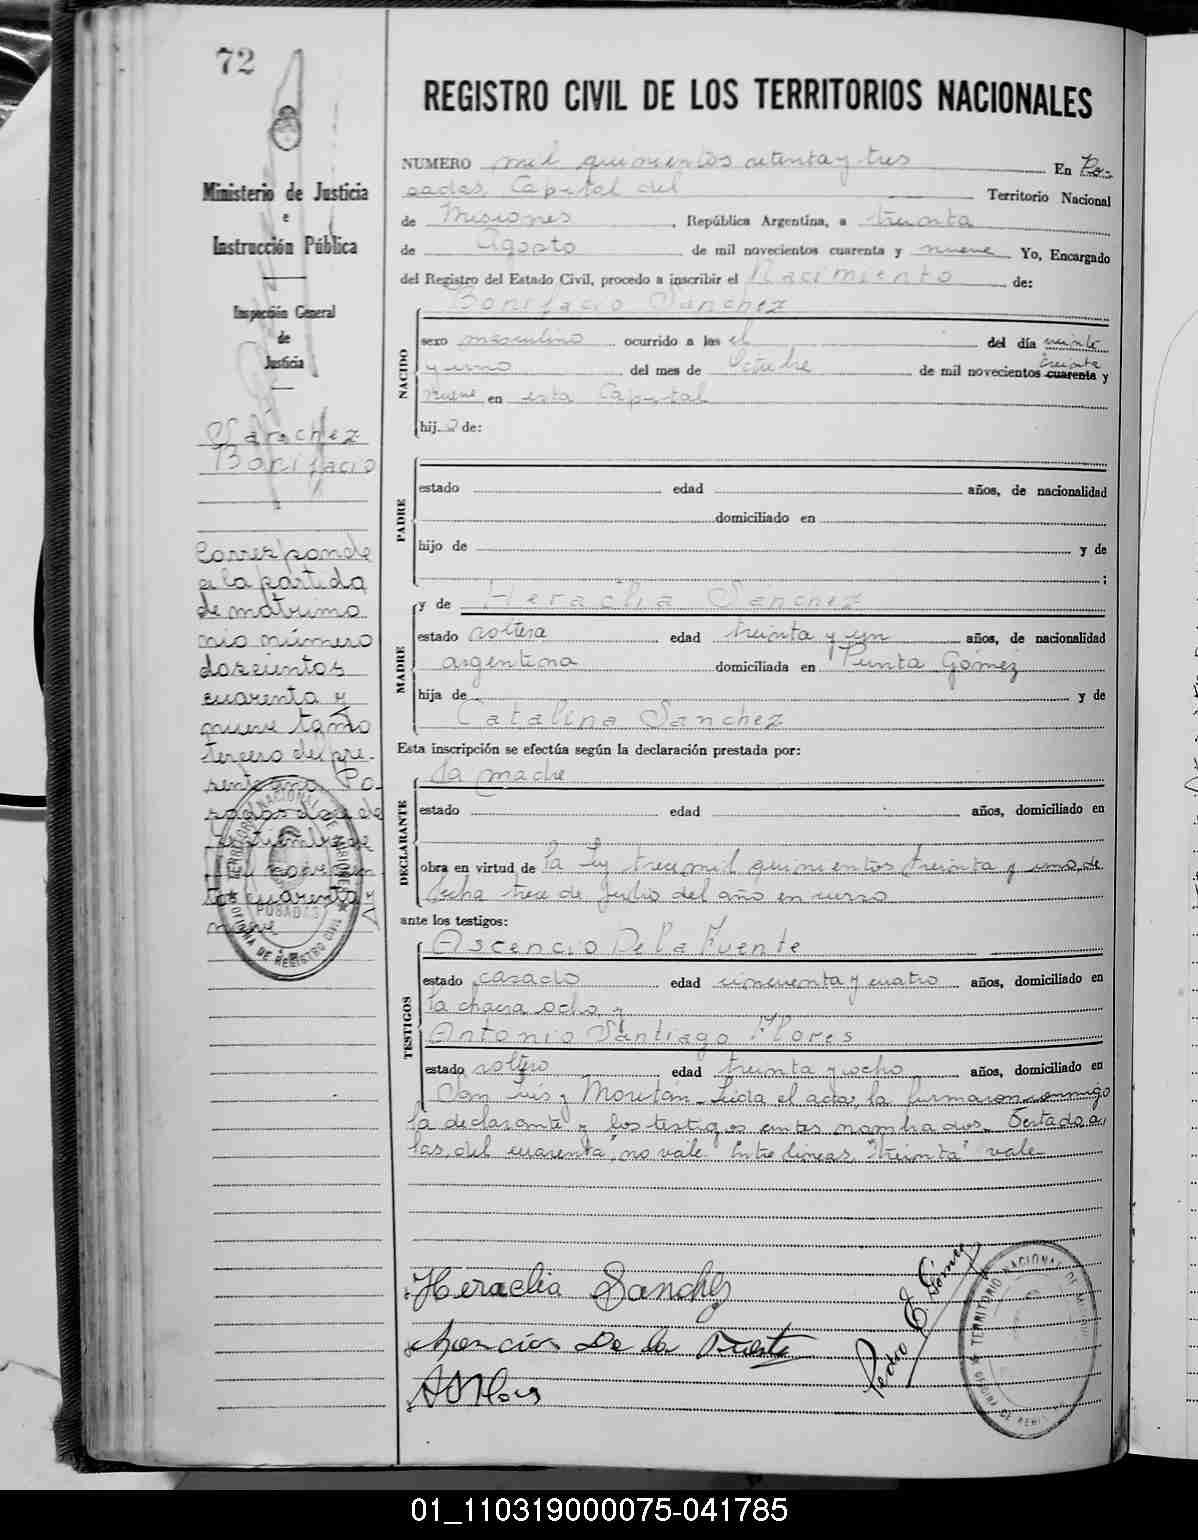 72
REGISTRO CIVIL DE LOS TERRITORIOS NACIONALES
Ministerio de Justicia
e
Instrucción Pública
Inspección General
de
Justicia
Sanchez
Bonifacio
Corresponde
a la partida
de matrimo
nio número
doscientos
cuarenta y
nueve tomo
tercero del pre-
sente año. Po
sadas doce de
Septiembre de
mil novecien
tos cuarenta y
nueve
TERRITORIO NACIONAL DE MISIONES
POSADAS
OFICINA DE REGISTRO CIVIL
NUMERO mil quinientos setenta y tres En Po-
sadas, Capital del Territorio Nacional
de Misiones, República Argentina, a treinta
de Agosto de mil novecientos cuarenta y nueve Yo, Encargado
del Registro del Estado Civil, procedo a inscribir el Nacimiento de:
Bonifacio Sanchez
NACIDO
sexo masculino ocurrido a las el del día veinte
y uno del mes de Octubre de mil novecientos cuarenta treinta y
nueve en esta Capital
hijo de:
PADRE
estado edad años, de nacionalidad
domiciliado en
hijo de y de
;
MADRE
y de Heraclia Sanchez
estado soltera edad treinta y un años, de nacionalidad
argentina domiciliada en Punta Gómez
hija de y de
Catalina Sanchez
Esta inscripción se efectúa según la declaración prestada por:
DECLARANTE
la madre
estado edad años, domiciliado en
obra en virtud de la ley trece mil quinientos treinta y uno, de
fecha trece de Julio del año en curso
ante los testigos:
TESTIGOS
Ascencio De la Fuente
estado casado edad cincuenta y cuatro años, domiciliado en
la chacra ocho y
Antonio Santiago Flores
estado soltero edad treinta y ocho años, domiciliado en
San Luis y Moritán. Leída el acta, la firmaron conmigo
la declarante y los testigos antes nombrados. Testado: a
las, del cuarenta, no vale. Entre líneas, "treinta" vale
Heraclia Sanchez
Acencios De la Fuente
Pedro E. Gómez
TERRITORIO NACIONAL DE
OFICINA DE
01_110319000075-041785